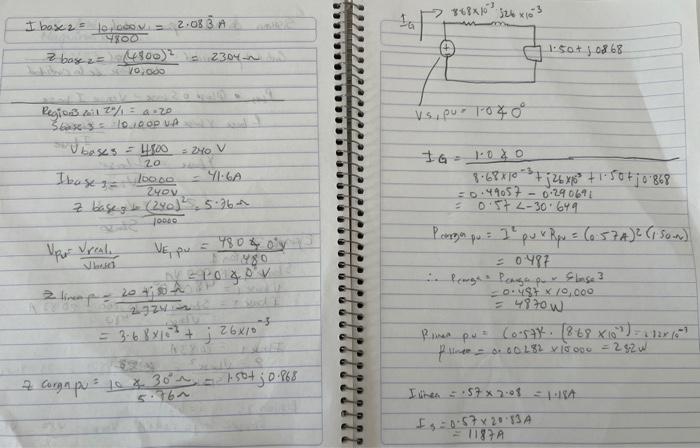 I base 2 = 10,000 V / 4800 = 2.083 A
Z base 2 = (4800)² / 10,000 = 2304 Ω
Region 3 = a = 20
Sbase 3 = 10,000 VA
Vbase 3 = 4800 / 20 = 240 V
Ibase 3 = 10000 / 240V = 41.6A
Z base 3 = (240)² / 10000 = 5.76 Ω
Vpu = Vreal / Vbase
VE, pu = 480 ∡ 0° V / 480
= 1.0 ∡ 0° V
Z linea pu =
= 3.68 x10⁻³ + j 26x10⁻³
Z carga pu = 10 ∡ 30° Ω / 5.76 Ω = 1.50 + j 0.868
I G
8.68x10⁻³ j26 x10⁻³
1.50 + j 0.868
Vs, pu = 1.0 ∡ 0°
I G = 1.0 ∡ 0 / 8.68 x10⁻³ + j26 x10⁻³ + 1.50 + j0.868
= 0.49057 - 0.29069i
= 0.57 < -30.649
Pcarga pu = I² pu x Rpu = (0.57A)² (1.50 Ω)
= 0.487
∴ Pcarga = Pcarga pu x Sbase 3
= 0.487 x 10,000
= 4870 W
P linea pu =
P linea = 0.00282 x 10000 = 28.2 W
I linea = .57 x 2.08 = 1.18A
I s = 0.57 x 20.83 A
= 11.87 A